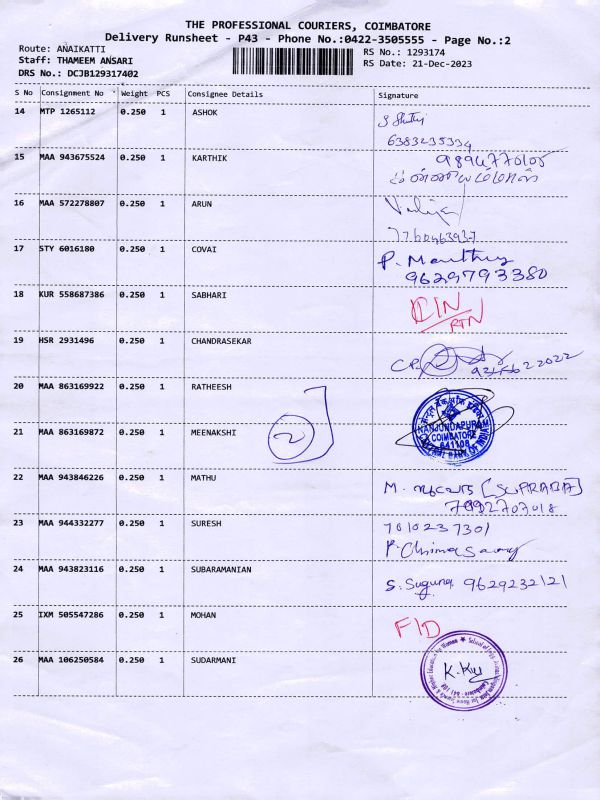 THE PROFESSIONAL COURIERS, COIMBATORE
Delivery Runsheet - P43 - Phone No.:0422-3505555 - Page No.:2
Route: ANAIKATTI
Staff: THAMEEM ANSARI
DRS No.: DCJB129317402
RS No.: 1293174
RS Date: 21-Dec-2023
S No Consignment No Weight PCS Consignee Details Signature
14 MTP 1265112 0.250 1 ASHOK
6383235334
15 MAA 943675524 0.250 1 KARTHIK
16 MAA 572278807 0.250 1 ARUN
17 STY 6016180 0.250 1 COVAI P. Manthy
9629793380
18 KUR 558687386 0.250 1 SABHARI CIN
RTN
19 HSR 2931496 0.250 1 CHANDRASEKAR
20 MAA 863169922 0.250 1 RATHEESH
2
NANJUNDAPURAM
COIMBATORE
641108
21 MAA 863169872 0.250 1 MEENAKSHI
22 MAA 943846226 0.250 1 MATHU M. [SUPRABA]
7092707018
23 MAA 944332277 0.250 1 SURESH 7010237301
24 MAA 943823116 0.250 1 SUBARAMANIAN S. Suguna 9629232121
25 IXM 505547286 0.250 1 MOHAN F/D
26 MAA 106250584 0.250 1 SUDARMANI K.Ku